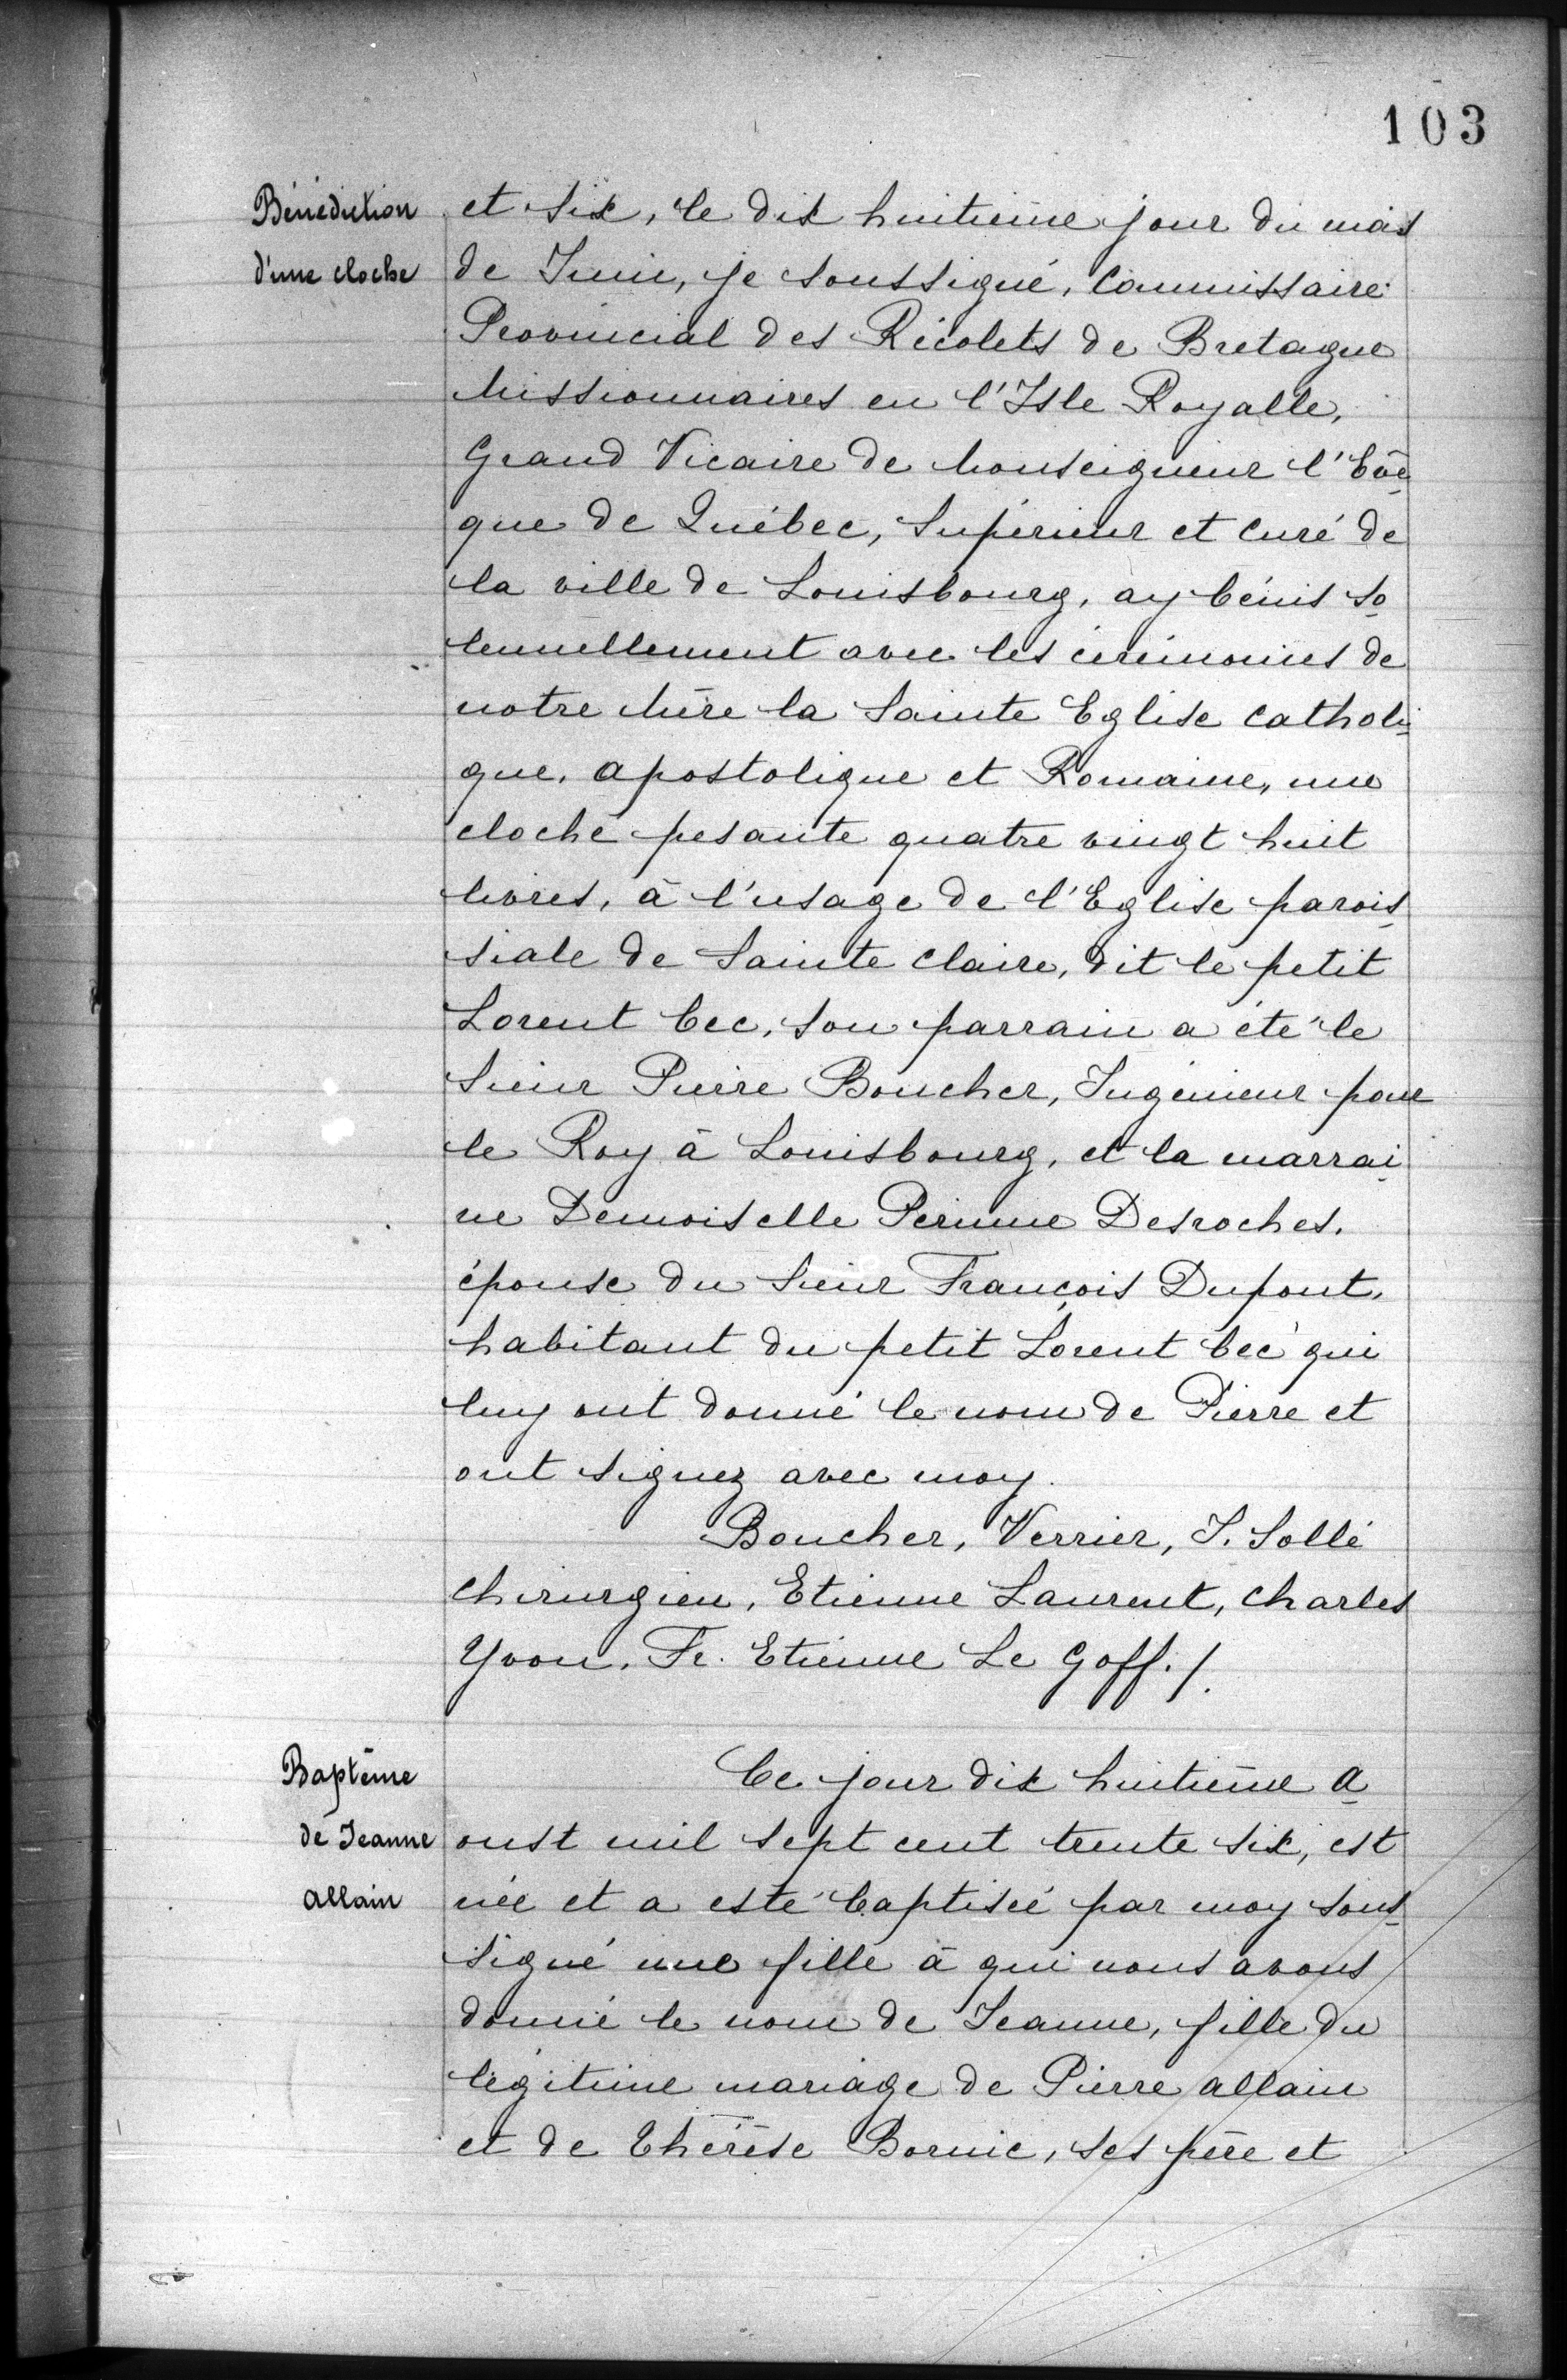 103
Bénédiction
d'une cloche
et six, le dix huitième jour du mois
de Juin, je soussigné, Commissaire
Provincial des Récolets de Bretagne
Missionnaires en l'Isle Royalle,
Grand Vicaire de Monseigneur l'Evê
que de Québec, Supérieur et Curé de
la ville de Louisbourg, ay bénis so
lennellement avec les cérémonies de
notre Mère la Sainte Eglise Catholi
que, Apostolique et Romaine, une
cloche pesante quatre vingt huit
livres, à l'usage de l'Eglise parois
siale de Sainte Claire, dit le petit
Lorent bec, son parrain a été le
Sieur Pierre Boucher, Ingénieur pour
le Roy à Louisbourg, et la marrai
ne Demoiselle Perinne Desroches,
épouse du Sieur François Dupont,
habitant du petit Lorent bec qui
luy ont donné le nom de Pierre et
ont signez avec moy.
Boucher, Verrier, J. Sollé
Chirurgien, Etienne Laurent, Charles
Yvon, Fr. Etienne Le Goff./.
Baptême
de Jeanne
Allain
Ce jour dix huitième A
oust mil sept cent trente six, est
née et a esté baptiseé par moy sous
signé une fille à qui nous avons
donné le nom de Jeanne, fille du
légitime mariage de Pierre Allain
et de Thérèse Bornic, ses père et